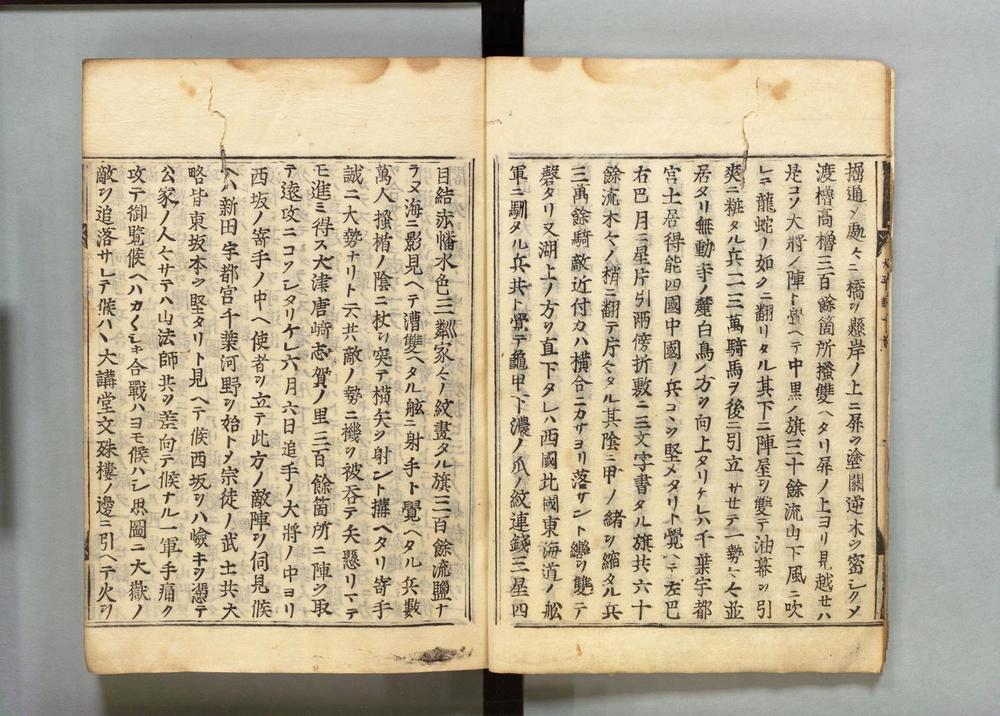 搦通シ處々ニ橋ヲ懸岸ノ上ニ屏ヲ塗關逆木ヲ密シクメ
渡櫓高櫓三百餘箇所撥雙ヘタリ屏ノ上ヨリ見越セハ
是コソ大將ノ陣ト覺ヘテ中黒ノ旗三十餘流山下風ニ吹
レテ龍蛇ノ如クニ翻リタル其下ニ陣屋ヲ雙テ油幕ヲ引
爽ニ粧タル兵二三萬騎馬ヲ後ニ引立サセテ一勢々々並
居タリ無動寺ノ麓白鳥ノ方ヲ向上タリケレハ千葉宇都
宮土居得能四國中國ノ兵コヽヲ堅メタリト覺ヘテ左巴
右巴月ニ星片引兩傍折敷ニ三文字書タル旗共六十
餘流木々ノ梢ニ翻テ片々タル其陰ニ甲ノ緒ヲ縮タル兵
三萬餘騎敵近付カハ横合ニカサヨリ落サント轡ヲ雙テ
磬タリ又湖上ノ方ヲ直下タレハ西國北國東海道ノ舩
軍ニ馴タル兵共ト覺テ龜甲下濃ノ瓜ノ紋連錢三星四
目結赤幡水色三粼家々ノ紋畫タル旗三百餘流鹽ナ
ラヌ海ニ影見ヘテ漕雙ヘタル舷ニ射手ト覺ヘタル兵數
萬人掻楯ノ陰ニ杖ヲ突テ横矢ヲ射ント搆ヘタリ寄手
誠ニ大勢ナリト云共敵ノ勢ニ機ヲ被呑テ矢懸リマテ
モ進ミ得ス大津唐﨑志賀ノ里三百餘箇所ニ陣ヲ取
テ遠攻ニコソシタリケレ六月六日追手ノ大將ノ中ヨリ
西坂ノ寄手ノ中ヘ使者ヲ立テ此方ノ敵陣ヲ伺見候
ヘハ新田宇都宮千葉河野ヲ始トメ宗徒ノ武士共大
略皆東坂本ヲ堅タリト見ヘテ候西坂ヲハ嶮キヲ憑テ
公家ノ人々サテハ山法師共ヲ差向テ候ナル一軍手痛ク
攻テ御覧候ヘハカ〱シキ合戰ハヨモ候ハシ思圖ニ大嶽ノ
敵ヲ追落サレテ候ハヽ大講堂文殊樓ノ邊ニ引ヘテ火ヲ